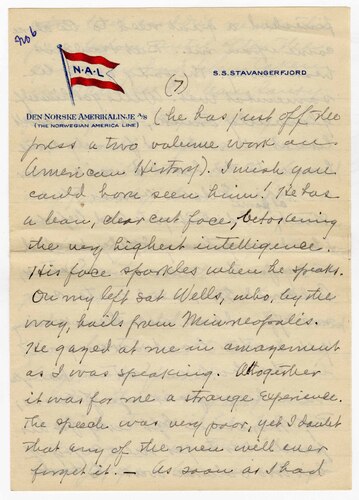 No 6
N·A·L
(7)
S.S. STAVANGERFJORD
DEN NORSKE AMERIKALINJE A/S
(THE NORWEGIAN AMERICA LINE)
(he has just off the
press a two volume work on
American History). I wish you
could have seen him! He has
a lean, clear cut face, betokening
the very highest intelligence.
His face sparkles when he speaks.
On my left sat Wells, who, by the
way, hails from Minneapolis.
He gazed at me in amazement
as I was speaking. Altogether
it was for me a strange experience.
The speech was very poor, yet I doubt
that any of the men will ever
forget it. — As soon as I had